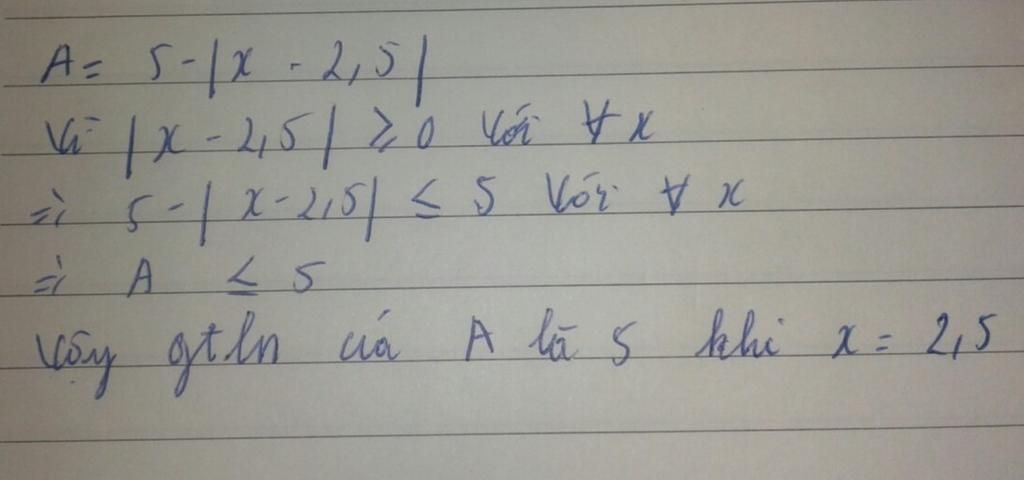 A = 5 - |x - 2,5|
Vì |x - 2,5| ≥ 0 với ∀ x
=> 5 - |x - 2,5| ≤ 5 với ∀ x
=> A ≤ 5
Vậy gtln của A là 5 khi x = 2,5